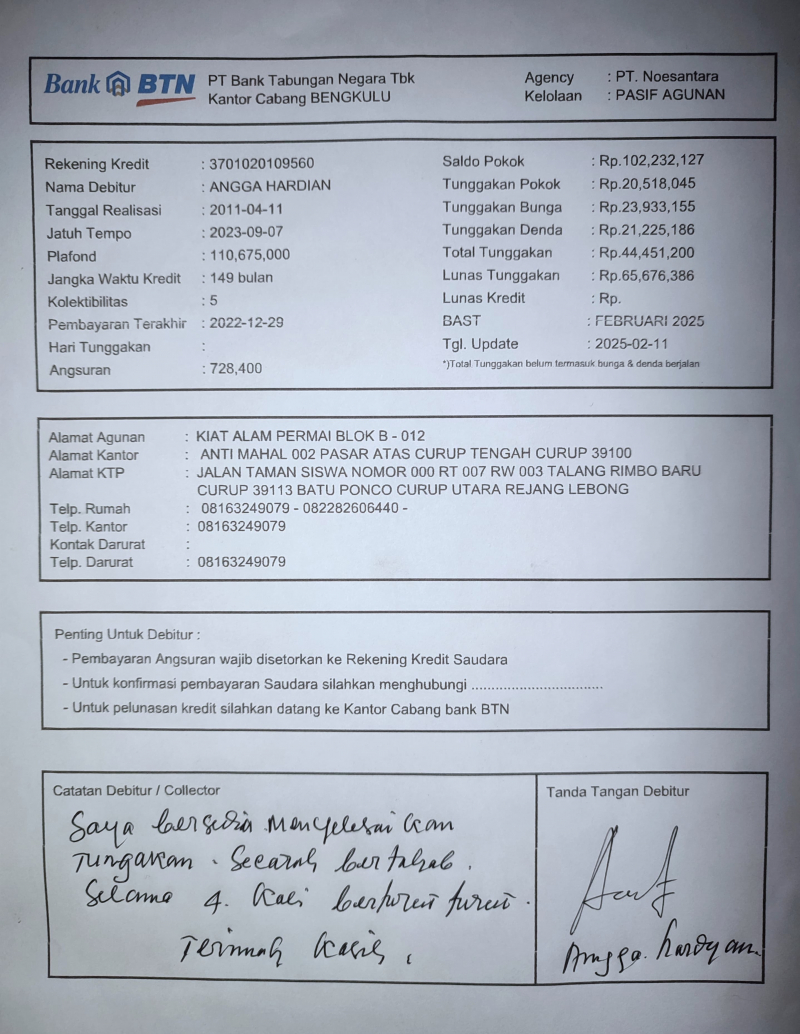 Bank BTN
PT Bank Tabungan Negara Tbk
Kantor Cabang BENGKULU
Agency : PT. Noesantara
Kelolaan : PASIF AGUNAN
Rekening Kredit : 3701020109560
Nama Debitur : ANGGA HARDIAN
Tanggal Realisasi : 2011-04-11
Jatuh Tempo : 2023-09-07
Plafond : 110,675,000
Jangka Waktu Kredit : 149 bulan
Kolektibilitas : 5
Pembayaran Terakhir : 2022-12-29
Hari Tunggakan :
Angsuran : 728,400
Saldo Pokok : Rp.102,232,127
Tunggakan Pokok : Rp.20,518,045
Tunggakan Bunga : Rp.23,933,155
Tunggakan Denda : Rp.21,225,186
Total Tunggakan : Rp.44,451,200
Lunas Tunggakan : Rp.65,676,386
Lunas Kredit : Rp.
BAST : FEBRUARI 2025
Tgl. Update : 2025-02-11
*)Total Tunggakan belum termasuk bunga & denda berjalan
Alamat Agunan : KIAT ALAM PERMAI BLOK B - 012
Alamat Kantor : ANTI MAHAL 002 PASAR ATAS CURUP TENGAH CURUP 39100
Alamat KTP : JALAN TAMAN SISWA NOMOR 000 RT 007 RW 003 TALANG RIMBO BARU
CURUP 39113 BATU PONCO CURUP UTARA REJANG LEBONG
Telp. Rumah : 08163249079 - 082282606440 -
Telp. Kantor : 08163249079
Kontak Darurat :
Telp. Darurat : 08163249079
Penting Untuk Debitur :
- Pembayaran Angsuran wajib disetorkan ke Rekening Kredit Saudara
- Untuk konfirmasi pembayaran Saudara silahkan menghubungi ................................
- Untuk pelunasan kredit silahkan datang ke Kantor Cabang bank BTN
Catatan Debitur / Collector
Saya bersedia menyelesaikan
Tungakan . Secarah bertahab .
Selama 4. Kali berturut turut .
Terimah Kasih ,
Tanda Tangan Debitur
Angga. hardyan